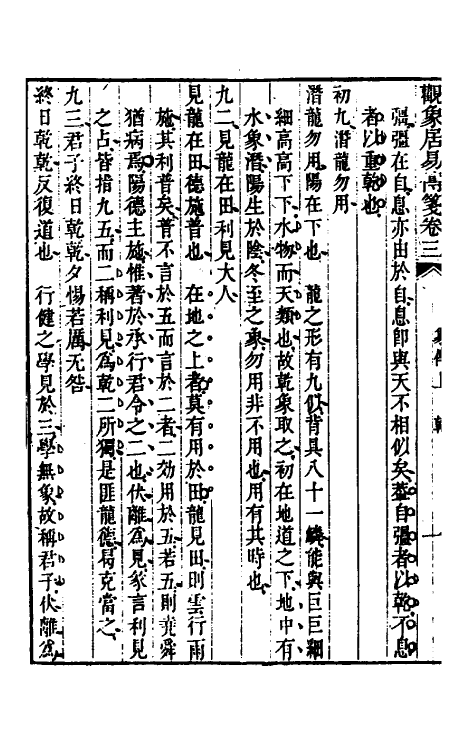 觀象居易傳箋卷三 象傳上 乾 一
彊彊在自息亦由於自息卽與天不相似矣葢自彊者以乾不息
者以重乾也
初九潛龍勿用
潛龍勿用陽在下也 龍之形有九似背具八十一鱗能與巨巨細
細高高下下水物而天類也故乾象取之初在地道之下地中有
水象潛陽生於陰冬至之象勿用非不用也用有其時也
九二見龍在田利見大人
見龍在田德施普也 在地之上者莫有用於田龍見田則雲行雨
施其利普矣普不言於五而言於二者二効用於五若五則堯舜
猶病焉陽德主施惟著於承行君令之二也伏離爲見彖言利見
之占皆指九五而二稱利見爲乾二所獨是匪龍德曷克當之
九三君子終日乾乾夕惕若厲无咎
終日乾乾反復道也 行健之學見於三學無象故稱君子伏離爲